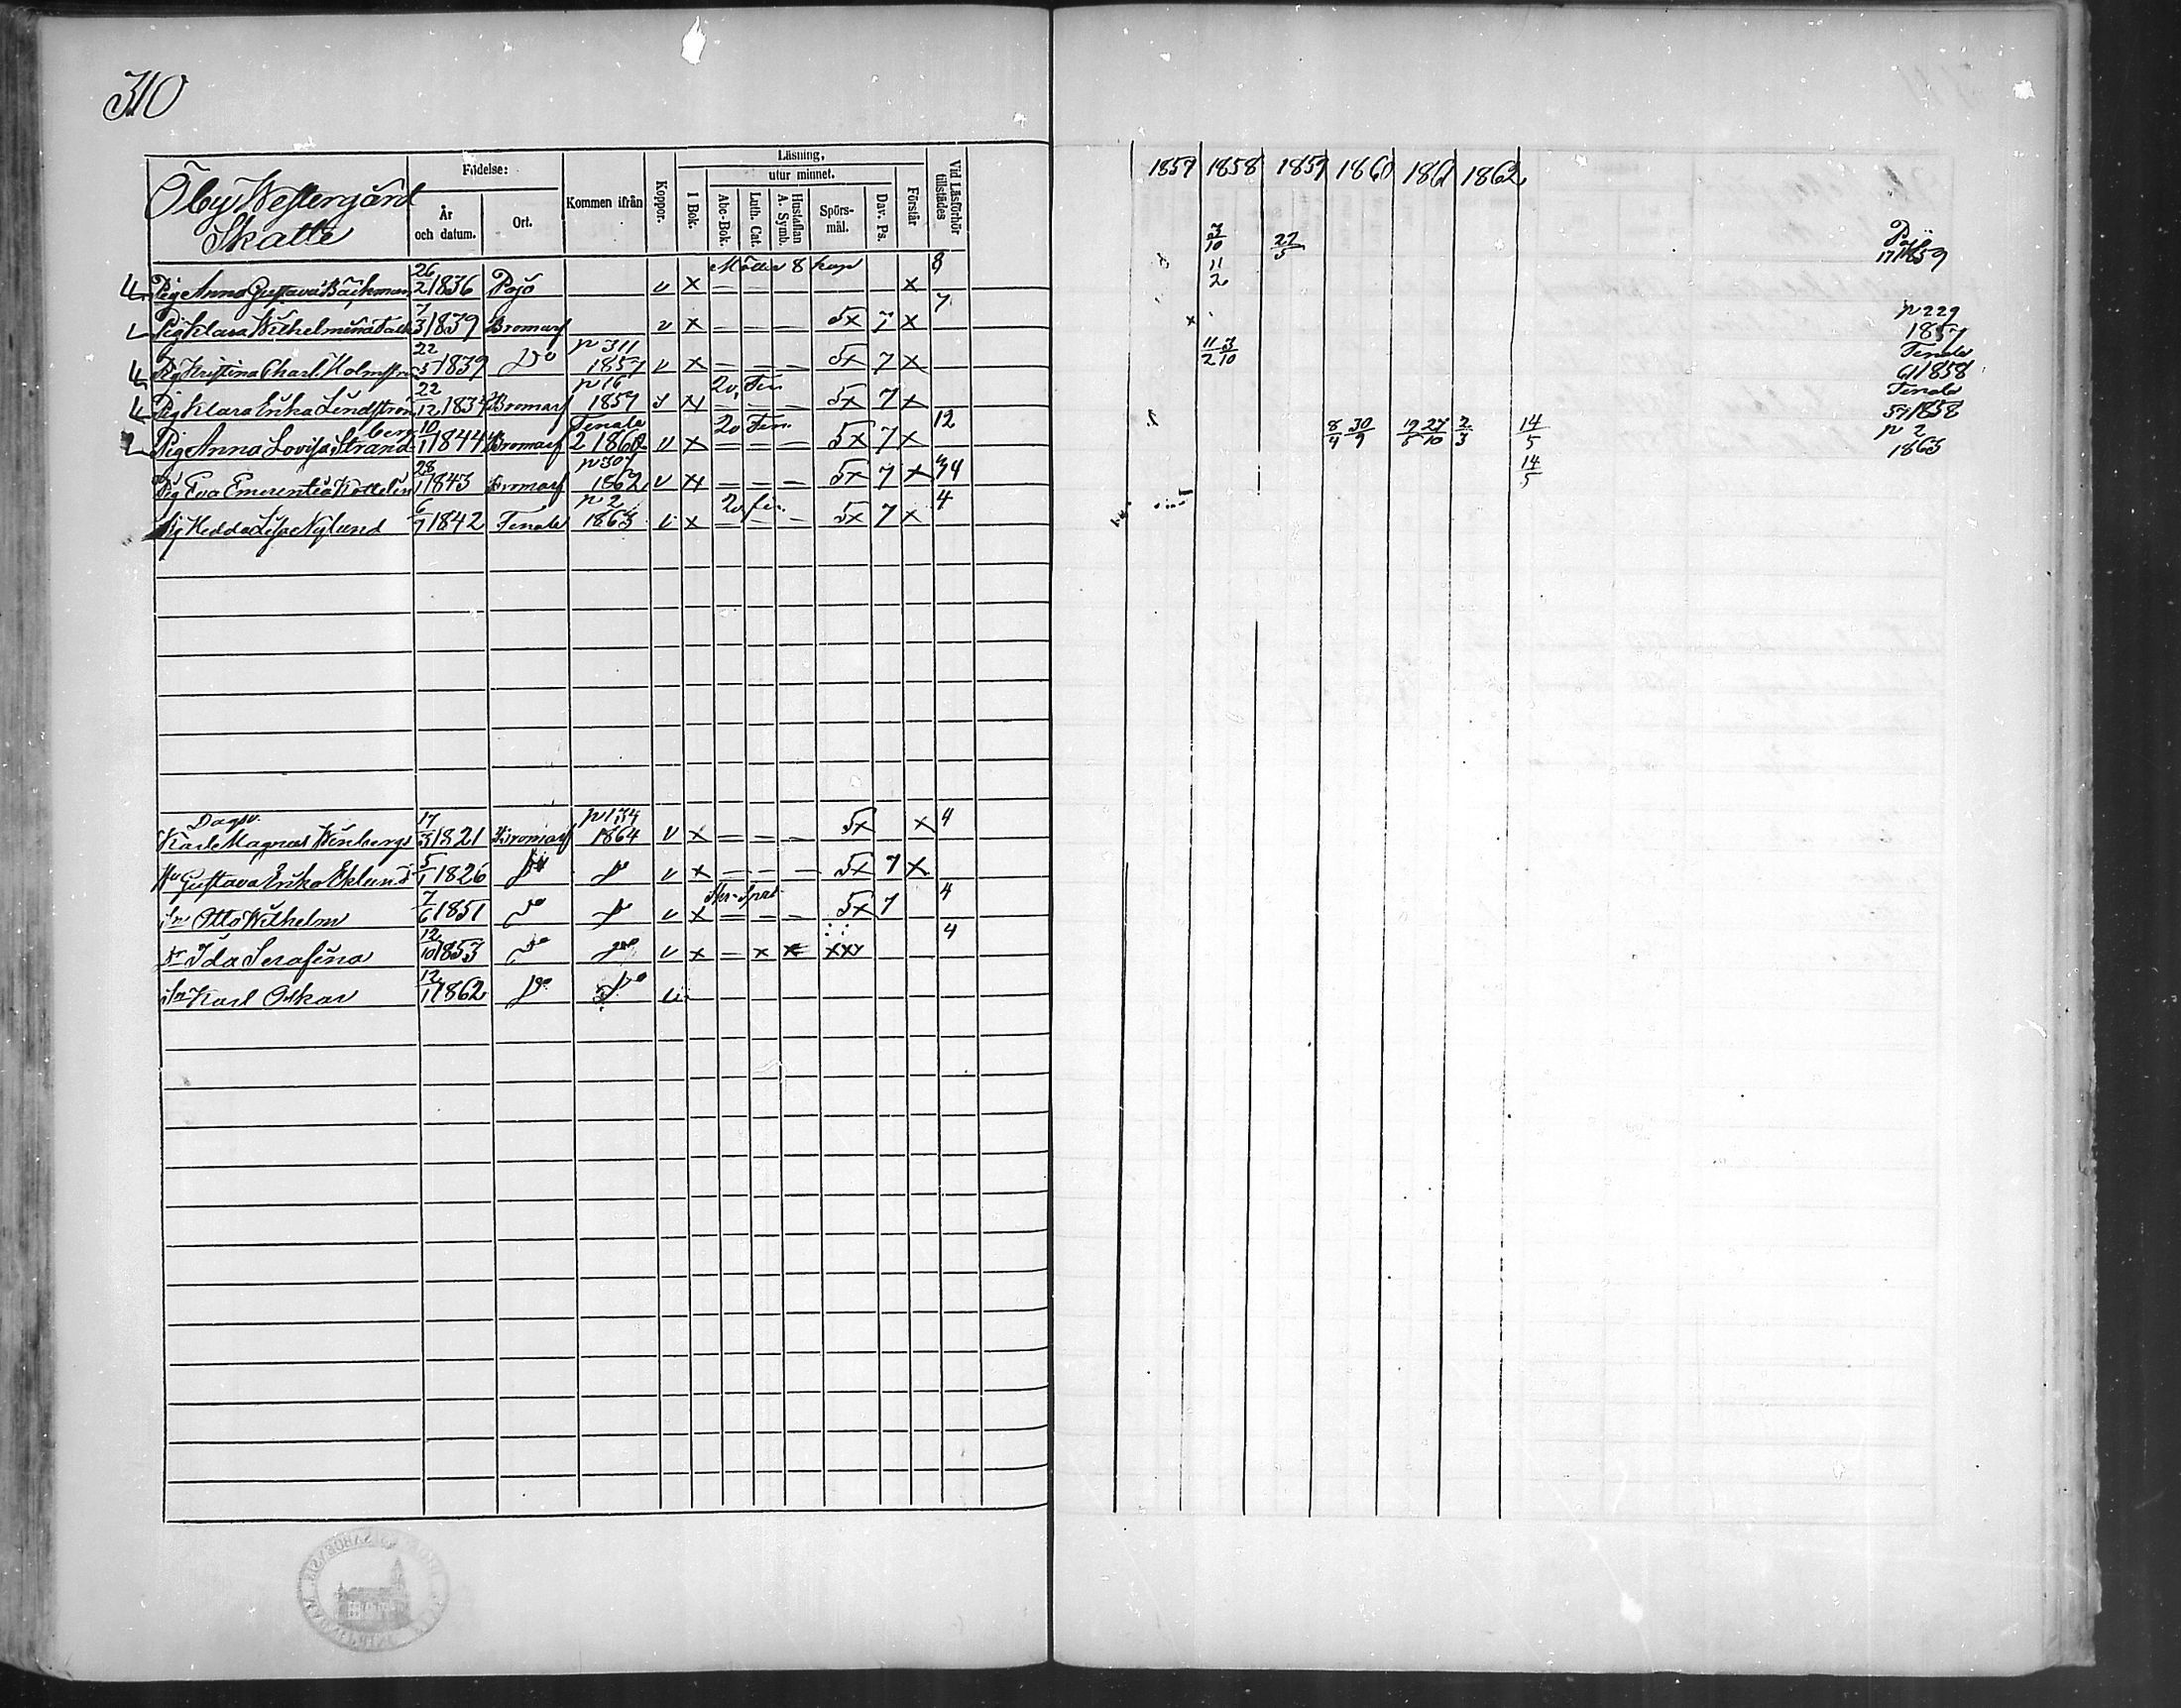 310
Öby Westergård
Skatte
Födelse:
År och datum.
Ort.
Kommen ifrån
Koppor.
Läsning,
I Bok.
utur minnet.
Abc-Bok.
Luth. Cat.
Hustaflan A. Symb.
Spörs-mål.
Dav. Ps.
Förstår
Vid Läsförhör tillstädes
1857 1858 1859 1860 1861 1862
Pig Anna Gustava Bäckman 26/2 1836 Pojo v x Möller 8 kap x 8 3/10 11/2 22/5 1859
Pig Klara Wilhelmina 7/3 1839 Bromarf v x – – – 5x 7 x 7 p 229 1857
Pig Kristina Charl. Holmstr 22 1839 Do p 311 1857 v x – – – 5x 7 x 11/2 3/10 Tenala 1858
Pig Klara Erika Lindström 22/12 1837 Bromarf p 16 1857 x – – – 5x 7 x Tenala 1858
Pig Anna Lovisa Strandberg 10/1 1844 Bromarf Tenala 2 1860 v x – – – 5x 7 x 12 8/4 30/9 27/10 2/3 14/5 p 2 1863
Pig Eva Emerentia 28/1 1843 Bromarf p 307 1862 v x – – – 5x 7 x 14/5
Pig Hedda Lisa Nylund 6/7 1842 Tenala p 2 1863 v x – – – 5x 7 x 4
Dagsv.
Karl Magnus Winberg 17/3 1821 Bromarf p 134 1864 v x – – – 5x x 4
Hu Gustava Erika Eklund 5/1 1826 Do Do v x – – – 5x 7 x
Sn Otto Wilhelm 7/6 1851 Do Do v x – – – 5x 7 4
Dr Ida Serafina 12/10 1853 Do Do v x – x x xxx 4
Sn Karl Oskar 12/1 1862 Do Do v